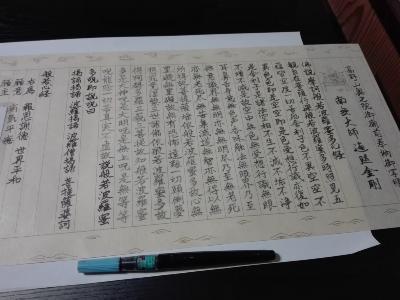 高野山奥之院御廟前奉納御写経
南無大師遍照金剛
佛説摩訶般若波羅蜜多心経
観自在菩薩行深般若波羅蜜多時照見五
蘊皆空度一切苦厄舎利子色不異空空不
異色色即是空空即是色受想行識亦復如
是舎利子是諸法空相不生不滅不垢不浄
不増不減是故空中無色無受想行識無眼
耳鼻舌身意無色聲香味觸法無眼界乃至
無意識界無無明亦無無明尽乃至無老死
亦無老死尽無苦集滅道無智亦無得以無
所得故菩提薩埵依般若波羅蜜多故心無
罣礙無罣礙故無有恐怖遠離一切顛倒夢
想究竟涅槃三世諸佛依般若波羅蜜多故
得阿耨多羅三藐三菩提故知般若波羅蜜
多是大神呪是大明呪是無上呪是無等等
呪能除一切苦真実不虚故説般若波羅蜜
多呪即説呪曰
掲諦掲諦 波羅掲諦 波羅僧掲諦 菩提薩婆訶
般若心経
右為 報恩謝徳 世界平和
願意 病気平癒